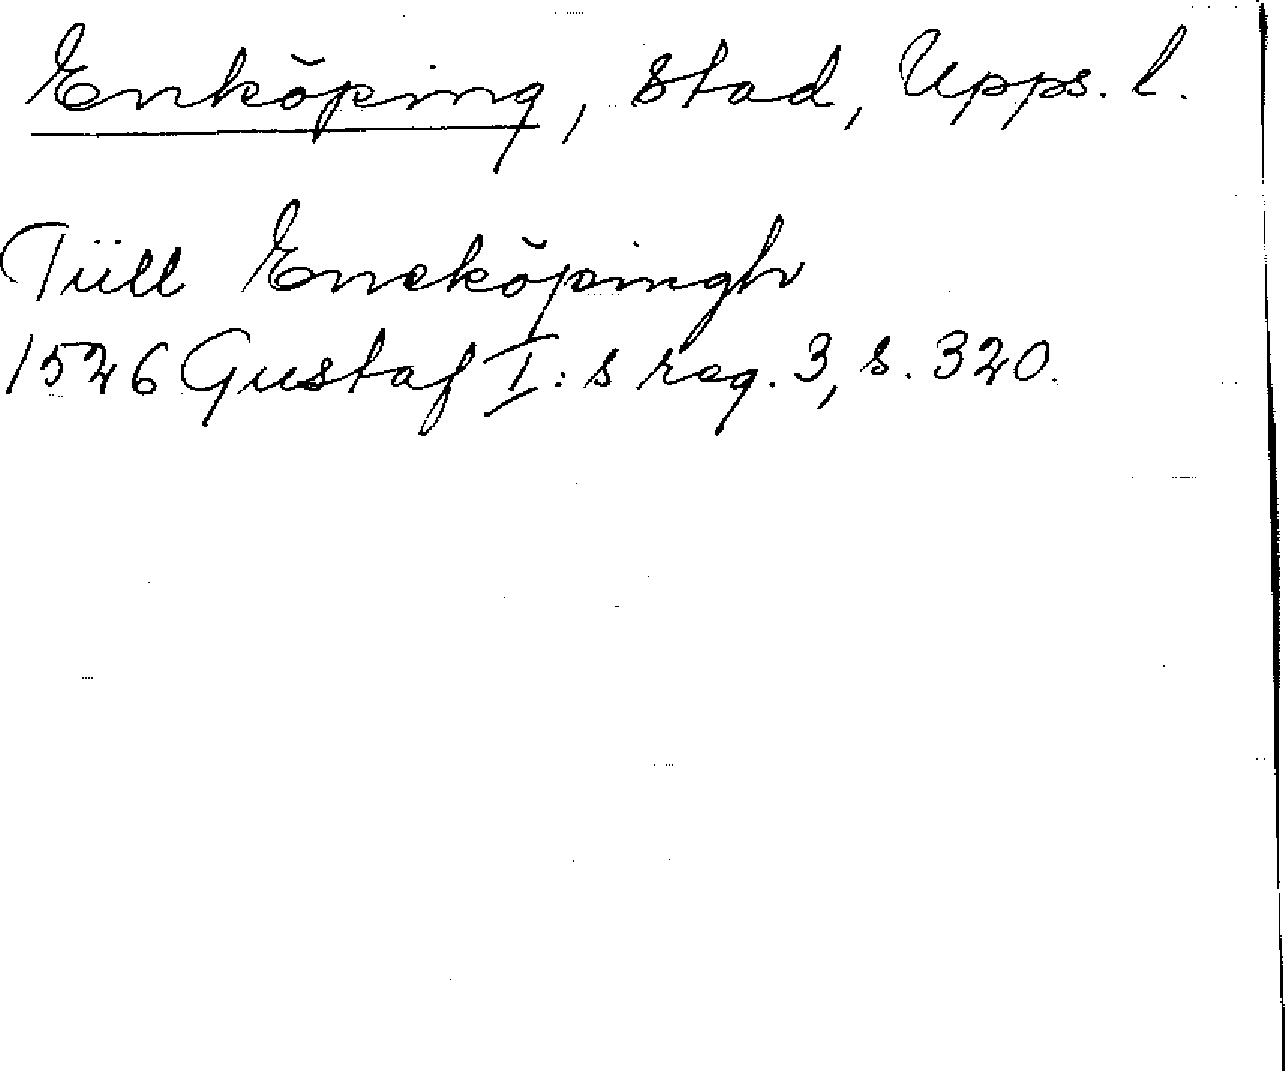 Enköping, stad, Upps. l.
Tiill Eneköpingh
1526 Gustaf I:s reg. 3, s. 320.